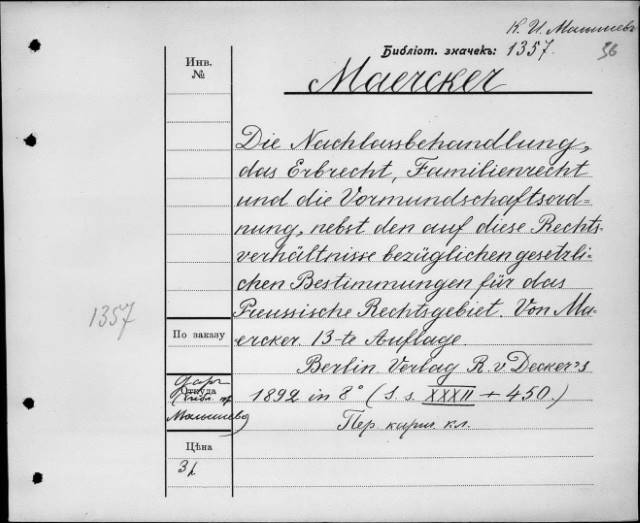 К. И. Малышевъ
Библіот. значекъ: 1357.
36
Инв.
№
Maercker
Die Nachlassbehandlung,
das Erbrecht, Familienrecht
und die Vormundschaftsord-
nung, nebst den auf diese Rechts-
verhältnisse bezüglichen gesetzli-
chen Bestimmungen für das
Preussische Rechtsgebiet. Von Ma-
ercker. 13-te Auflage.
1357
По заказу
Berlin. Verlag R. v. Decker's
1892 in 8° (S. s. XXXII + 450.)
Пер. кориш. кл.
Даръ
Откуда
Малышева
Цѣна
3